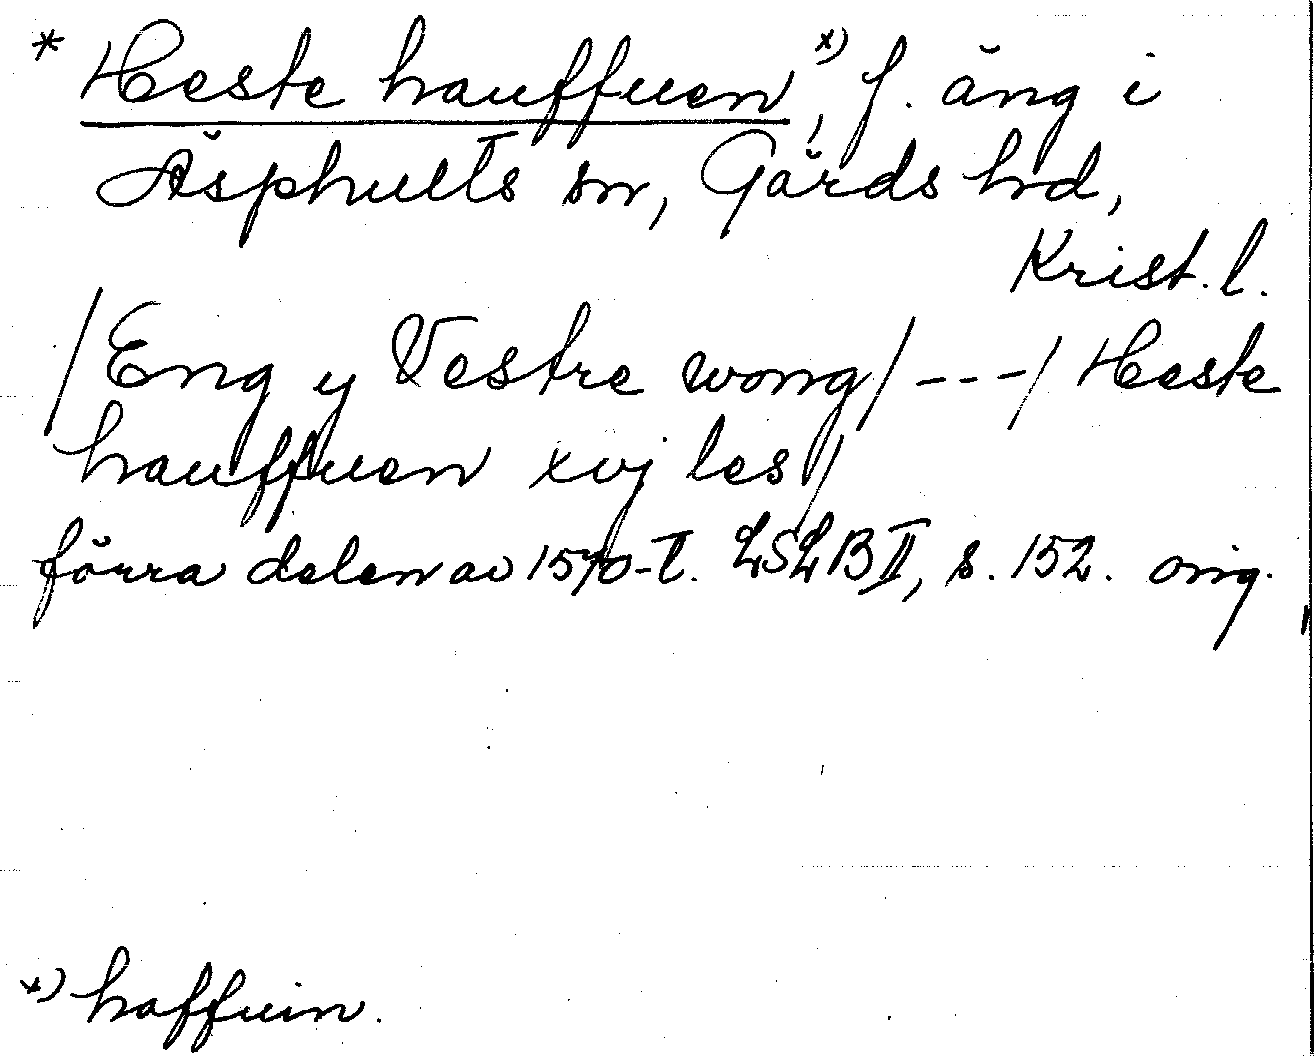 * Heste hauffuen x), f. äng i
Äsphults sn, Gärds hd,
Krist. l.
/Eng y Vestre wong/ --- / Heste
hauffuen xvj les/
förra delen av 1570-t. LSLB II, s. 152. orig.
x) haffuin.